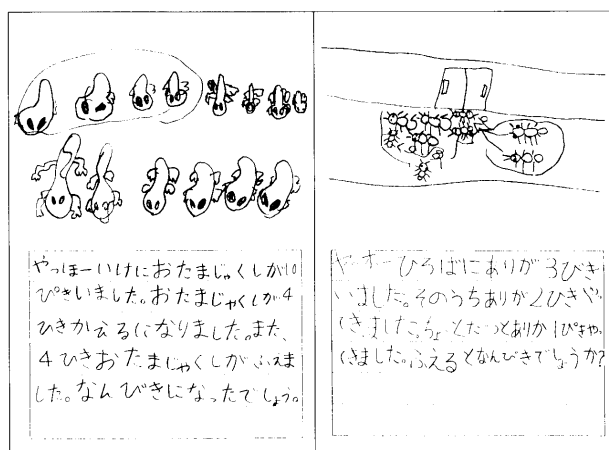 やっほーいけにおたまじゃくしが10
ぴきいました。おたまじゃくしが4
ひきかえるになりました。また、
4ひきおたまじゃくしがふえま
した。なんびきになったでしょう。
ヤッホーひろばにありが3びき
いました。そのうちありが2ひきや
きました。ちょとたつとありが1ぴきや
きました。ふえるとなんびきでしょうか?